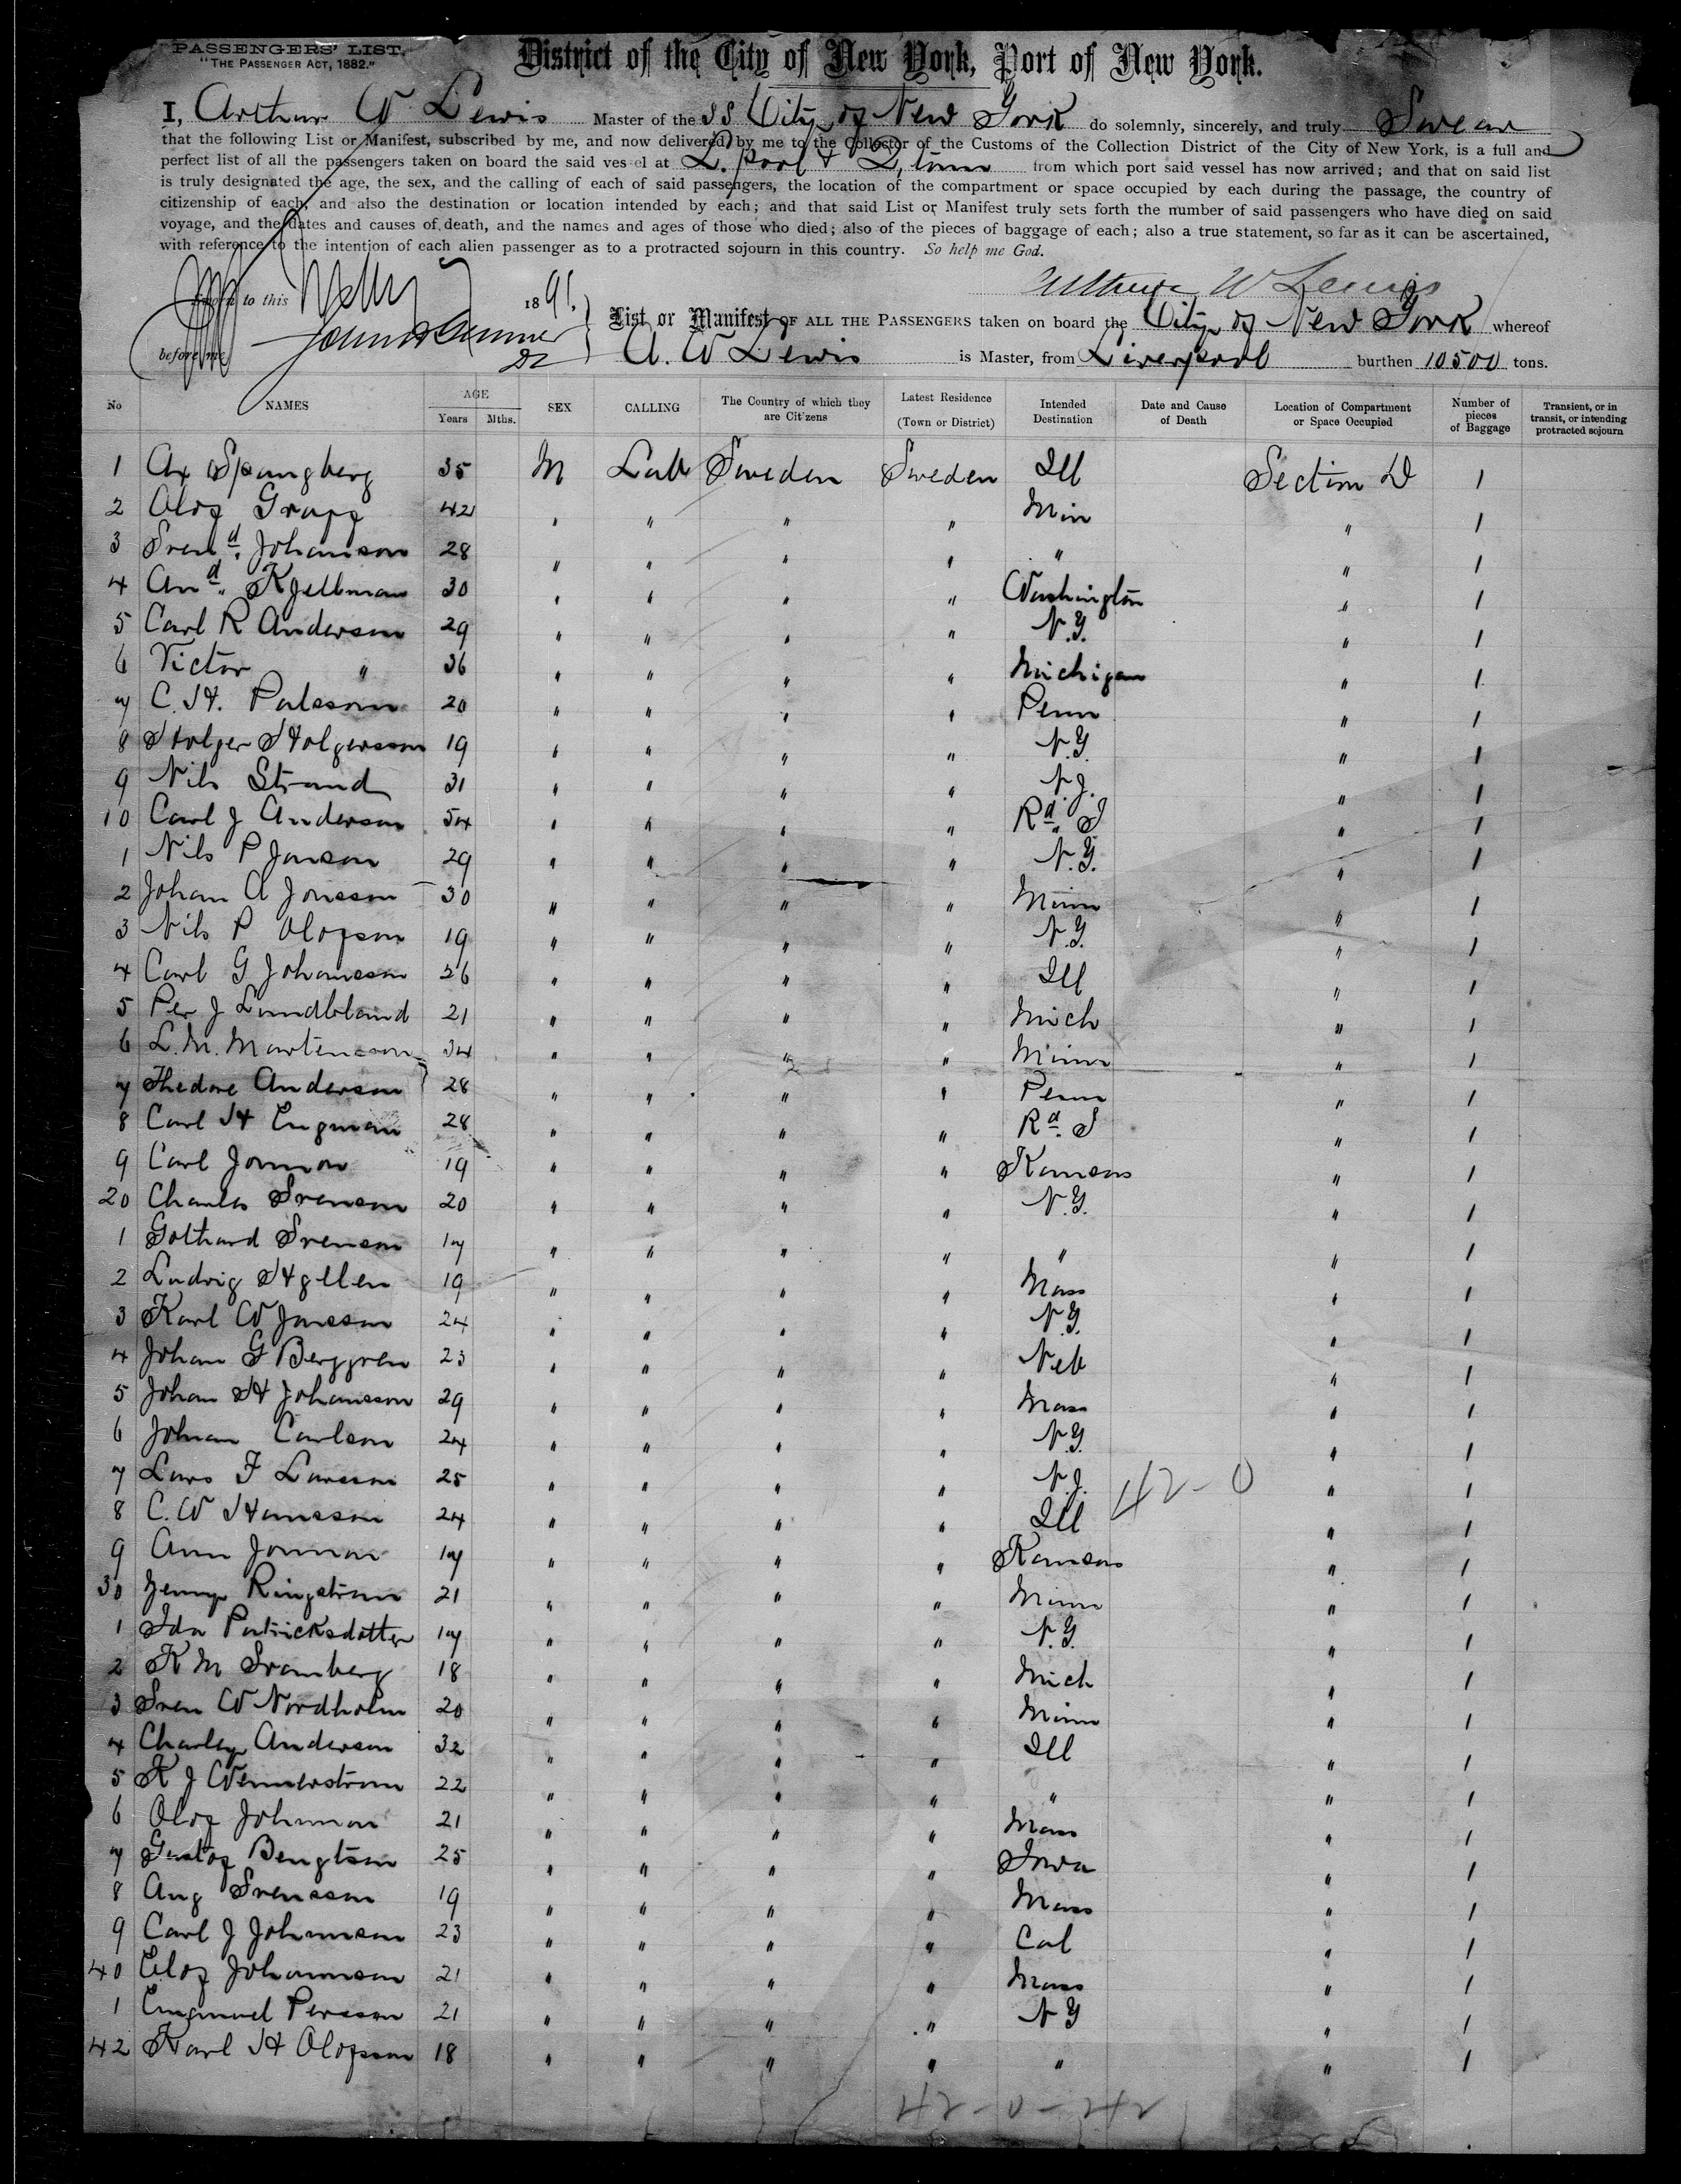 PASSENGERS' LIST.
"THE PASSENGER ACT, 1882."
District of the City of New York, Port of New York.
I, Arthur W Lewis Master of the SS City of New York do solemnly, sincerely, and truly Swear
that the following List or Manifest, subscribed by me, and now delivered by me to the Collector of the Customs of the Collection District of the City of New York, is a full and
perfect list of all the passengers taken on board the said vessel at L.pool & Q.town from which port said vessel has now arrived; and that on said list
is truly designated the age, the sex, and the calling of each of said passengers, the location of the compartment or space occupied by each during the passage, the country of
citizenship of each, and also the destination or location intended by each; and that said List or Manifest truly sets forth the number of said passengers who have died on said
voyage, and the dates and causes of death, and the names and ages of those who died; also of the pieces of baggage of each; also a true statement, so far as it can be ascertained,
with reference to the intention of each alien passenger as to a protracted sojourn in this country. So help me God.
Arthur W Lewis
Sworn to this 1891.
before me
List or Manifest OF ALL THE PASSENGERS taken on board the City of New York whereof
A. W Lewis is Master, from Liverpool burthen 10500 tons.
No NAMES AGE Years Mths. SEX CALLING The Country of which they are Citizens Latest Residence (Town or District) Intended Destination Date and Cause of Death Location of Compartment or Space Occupied Number of pieces of Baggage Transient, or in transit, or intending protracted sojourn
1 Ax Spangberg 35 M Lab Sweden Sweden Ill Section D 1
2 Olof Grapp 42 " " " " Min " 1
3 Svend. Johanson 28 " " " " " " 1
4 And. Kjellman 30 " " " " Washington " 1
5 Carl R Anderson 29 " " " " N.Y. " 1
6 Victor " 36 " " " " Michigan " 1
7 C. H. Palsson 20 " " " " Penn " 1
8 Holger Holgersson 19 " " " " N.Y. " 1
9 Nils Strand 31 " " " " N.J. " 1
10 Carl J Anderson 54 " " " " Rd. I " 1
1 Nils P Jonson 29 " " " " N.Y. " 1
2 Johan A Jonsson 30 " " " " Minn " 1
3 Nils P Olofson 19 " " " " N.Y. " 1
4 Carl G Johansson 26 " " " " Ill " 1
5 Per J Lundbland 21 " " " " Mich " 1
6 L. M. Martenson 34 " " " " Minn " 1
7 Thedore Anderson 28 " " " " Penn " 1
8 Carl H Engman 28 " " " " Rd. I " 1
9 Carl Jonnon 19 " " " " Kansas " 1
20 Charles Svenson 20 " " " " N.Y. " 1
1 Gothard Svenson 17 " " " " " " 1
2 Ludvig Hgllen 19 " " " " Mass " 1
3 Karl W Jansson 24 " " " " N.Y. " 1
4 Johan G Berggren 23 " " " " Neb " 1
5 Johan H Johansson 29 " " " " Mass " 1
6 Johan Carlson 24 " " " " N.Y. " 1
7 Lars F Larsson 25 " " " " N.J. 42-0 " 1
8 C. W Hansson 24 " " " " Ill " 1
9 Ann Jonnon 17 " " " " Kansas " 1
30 Jenny Ringstrom 21 " " " " Minn " 1
1 Ida Patricksdotter 17 " " " " N.Y. " 1
2 K M Svanberg 18 " " " " Mich " 1
3 Sven W Nordholm 20 " " " " Minn " 1
4 Charley Anderson 32 " " " " Ill " 1
5 K J Wennerstrom 22 " " " " " " 1
6 Olof Johnnon 21 " " " " Mass " 1
7 Gustof Bengtson 25 " " " " Iowa " 1
8 Aug Svensson 19 " " " " Mass " 1
9 Carl J Johannson 23 " " " " Cal " 1
40 Elof Johannson 21 " " " " Mass " 1
1 Emanuel Persson 21 " " " " N Y " 1
42 Karl H Olofsson 18 " " " " " " 1
42-0-42